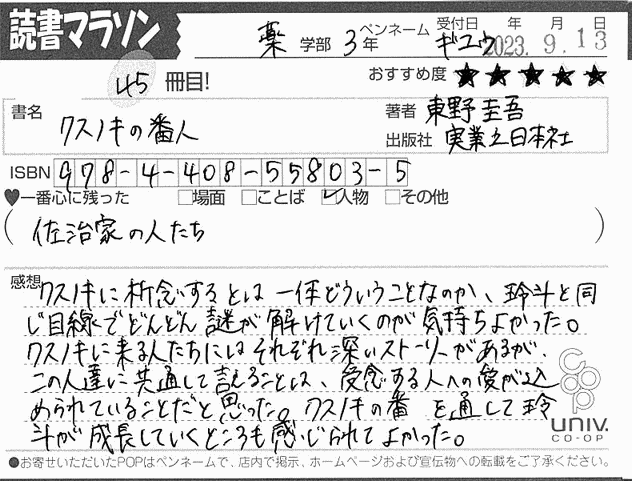 読書マラソン
薬 学部 3年 ペンネーム ギユウ 受付日 年 月 日 2023.9.13
45 冊目! おすすめ度 ★★★★★
書名 クスノキの番人
著者 東野圭吾
出版社 実業之日本社
ISBN 978-4-408-55803-5
♥一番心に残った □場面 □ことば ☑人物 □その他
(佐治家の人たち)
感想 クスノキに祈念するとは一体どういうことなのか、玲斗と同
じ目線でどんどん謎が解けていくのが気持ちよかった。
クスノキに来る人たちにはそれぞれ深いストーリーがあるが、
この人達に共通して言えることは、受念する人への愛が込
められていることだと思った。クスノキの番 を通して玲
斗が成長していくところも感じられてよかった。
coop
UNIV.
CO-OP
●お寄せいただいたPOPはペンネームで、店内で掲示、ホームページおよび宣伝物への転載をご了承ください。